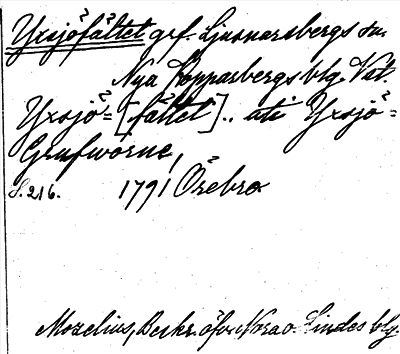 Yxsjöfältet grf. Ljusnarsbergs sn.
Nya Kopparbergs blg. Vstl.
Yxsjö=[fältet].. uti Yxsjö=
Grufwörne,
S. 216. 1791 Örebro
Mozelius, Beskr. öfv. Nora o. Lindes blg.